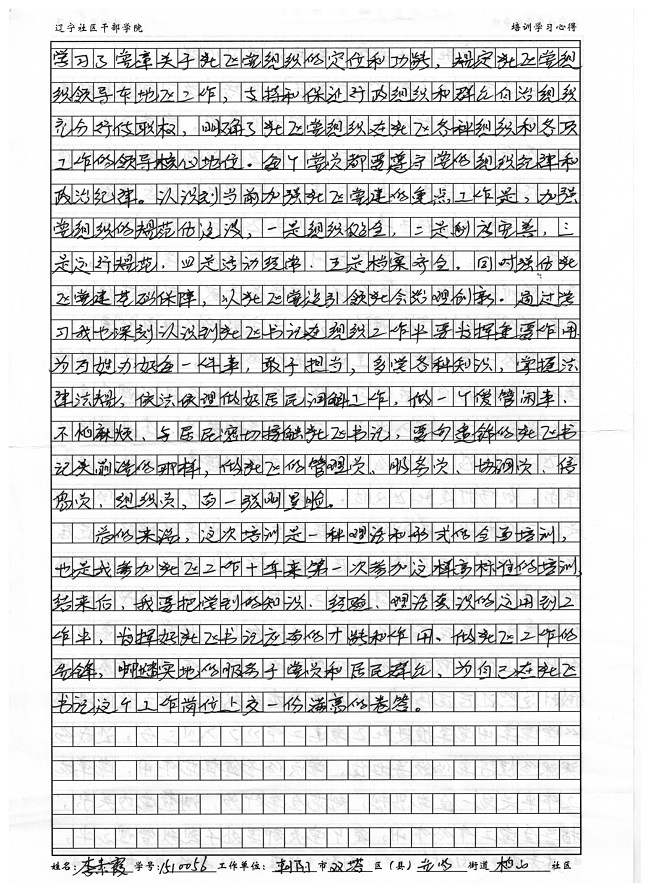 辽宁社区干部学院 培训学习心得
学习了党章关于社区党组织的定位和功能，规定社区党组
织领导本地区工作，支持和保证行政组织和群众自治组织
充分行使职权，明确了社区党组织在社区各种组织和各项
工作的领导核心地位。每个党员都要遵守党的组织纪律和
政治纪律。认识到当前加强社区党建的重点工作是，加强
党组织的规范化建设，一是组织健全，二是制度完善，三
是运行规范，四是活动经常，五是档案齐全，同时强化社
区党建基础保障，以社区党建引领社会治理创新。通过学
习我也深刻认识到社区书记在组织工作中要发挥重要作用
为百姓办好每一件事，敢于担当，多学各种知识，掌握法
律法规，依法依理做好居民调解工作，做一个爱管闲事、
不怕麻烦、与居民密切接触社区书记，要向先锋的社区书
记吴亚琴的那样，做社区的管理员、服务员、协调员、信
息员、组织员，有一张明星脸。
总的来说，这次培训是一种理论和形式的全面培训，
也是我参加社区工作十年来第一次参加这样高标准的培训，
结束后，我要把学到的知识、经验、理论实践的运用到工
作中，发挥好社区书记应有的才能和作用。做社区工作的
先锋，脚踏实地的服务于党员和居民群众，为自己在社区
书记这个工作岗位上交一份满意的卷答。
姓名：李素霞 学号：1510056 工作单位：朝阳 市 双塔 区（县） 街道 社区